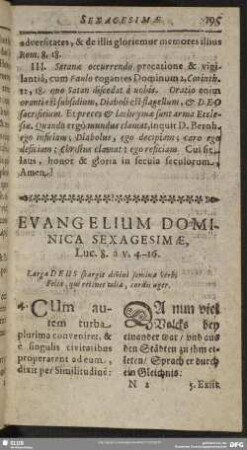 SEXAGESIMÆ. 195
adversitates, & de illis gloriemur memores illius
Rom. 8. 18.
III. Satanæ occurrendo precatione & vigi-
lantiâ, cum Paulo rogantes Dominum 2. Corinth.
12, 18. quo Satan discedat à nobis. Oratio enim
orantis est subsidium, Diaboli est flagellum, & DEO
sacrificium. Et preces & lachrymæ sunt arma Eccle-
siæ. Quando ergò mundus clamat, inquit D. Bernh.
ego inficiam; Diabolus, ego decipiam; caro ego
deficiam: Christus clamat: ego reficiam. Cui sit
laus, honor & gloria in secula seculorum,
Amen.)
EVANGELIUM DOMI-
NICA SEXAGESIMÆ,
Luc. 8. à v. 4-16.
Larga DEUS spargit dùbiæ semina Verbi
Felix, qui retinet cordis ager.
4. CUm au-
tem turba
plurima conveniret, &
è singulis civitatibus
properarent ad eum,
dixit per Similitudinē:
DA nun viel
Volcks bey
einander war / und aus
den Städten zu ihm ei-
leten / Sprach er durch
ein Gleichnis:
N 2 5. Exiit